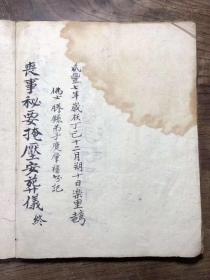 咸豐七年歲在丁巳十二月朔十日樂里
佛士勝縣弟子度厚記
喪事秘要掩壓安葬儀終